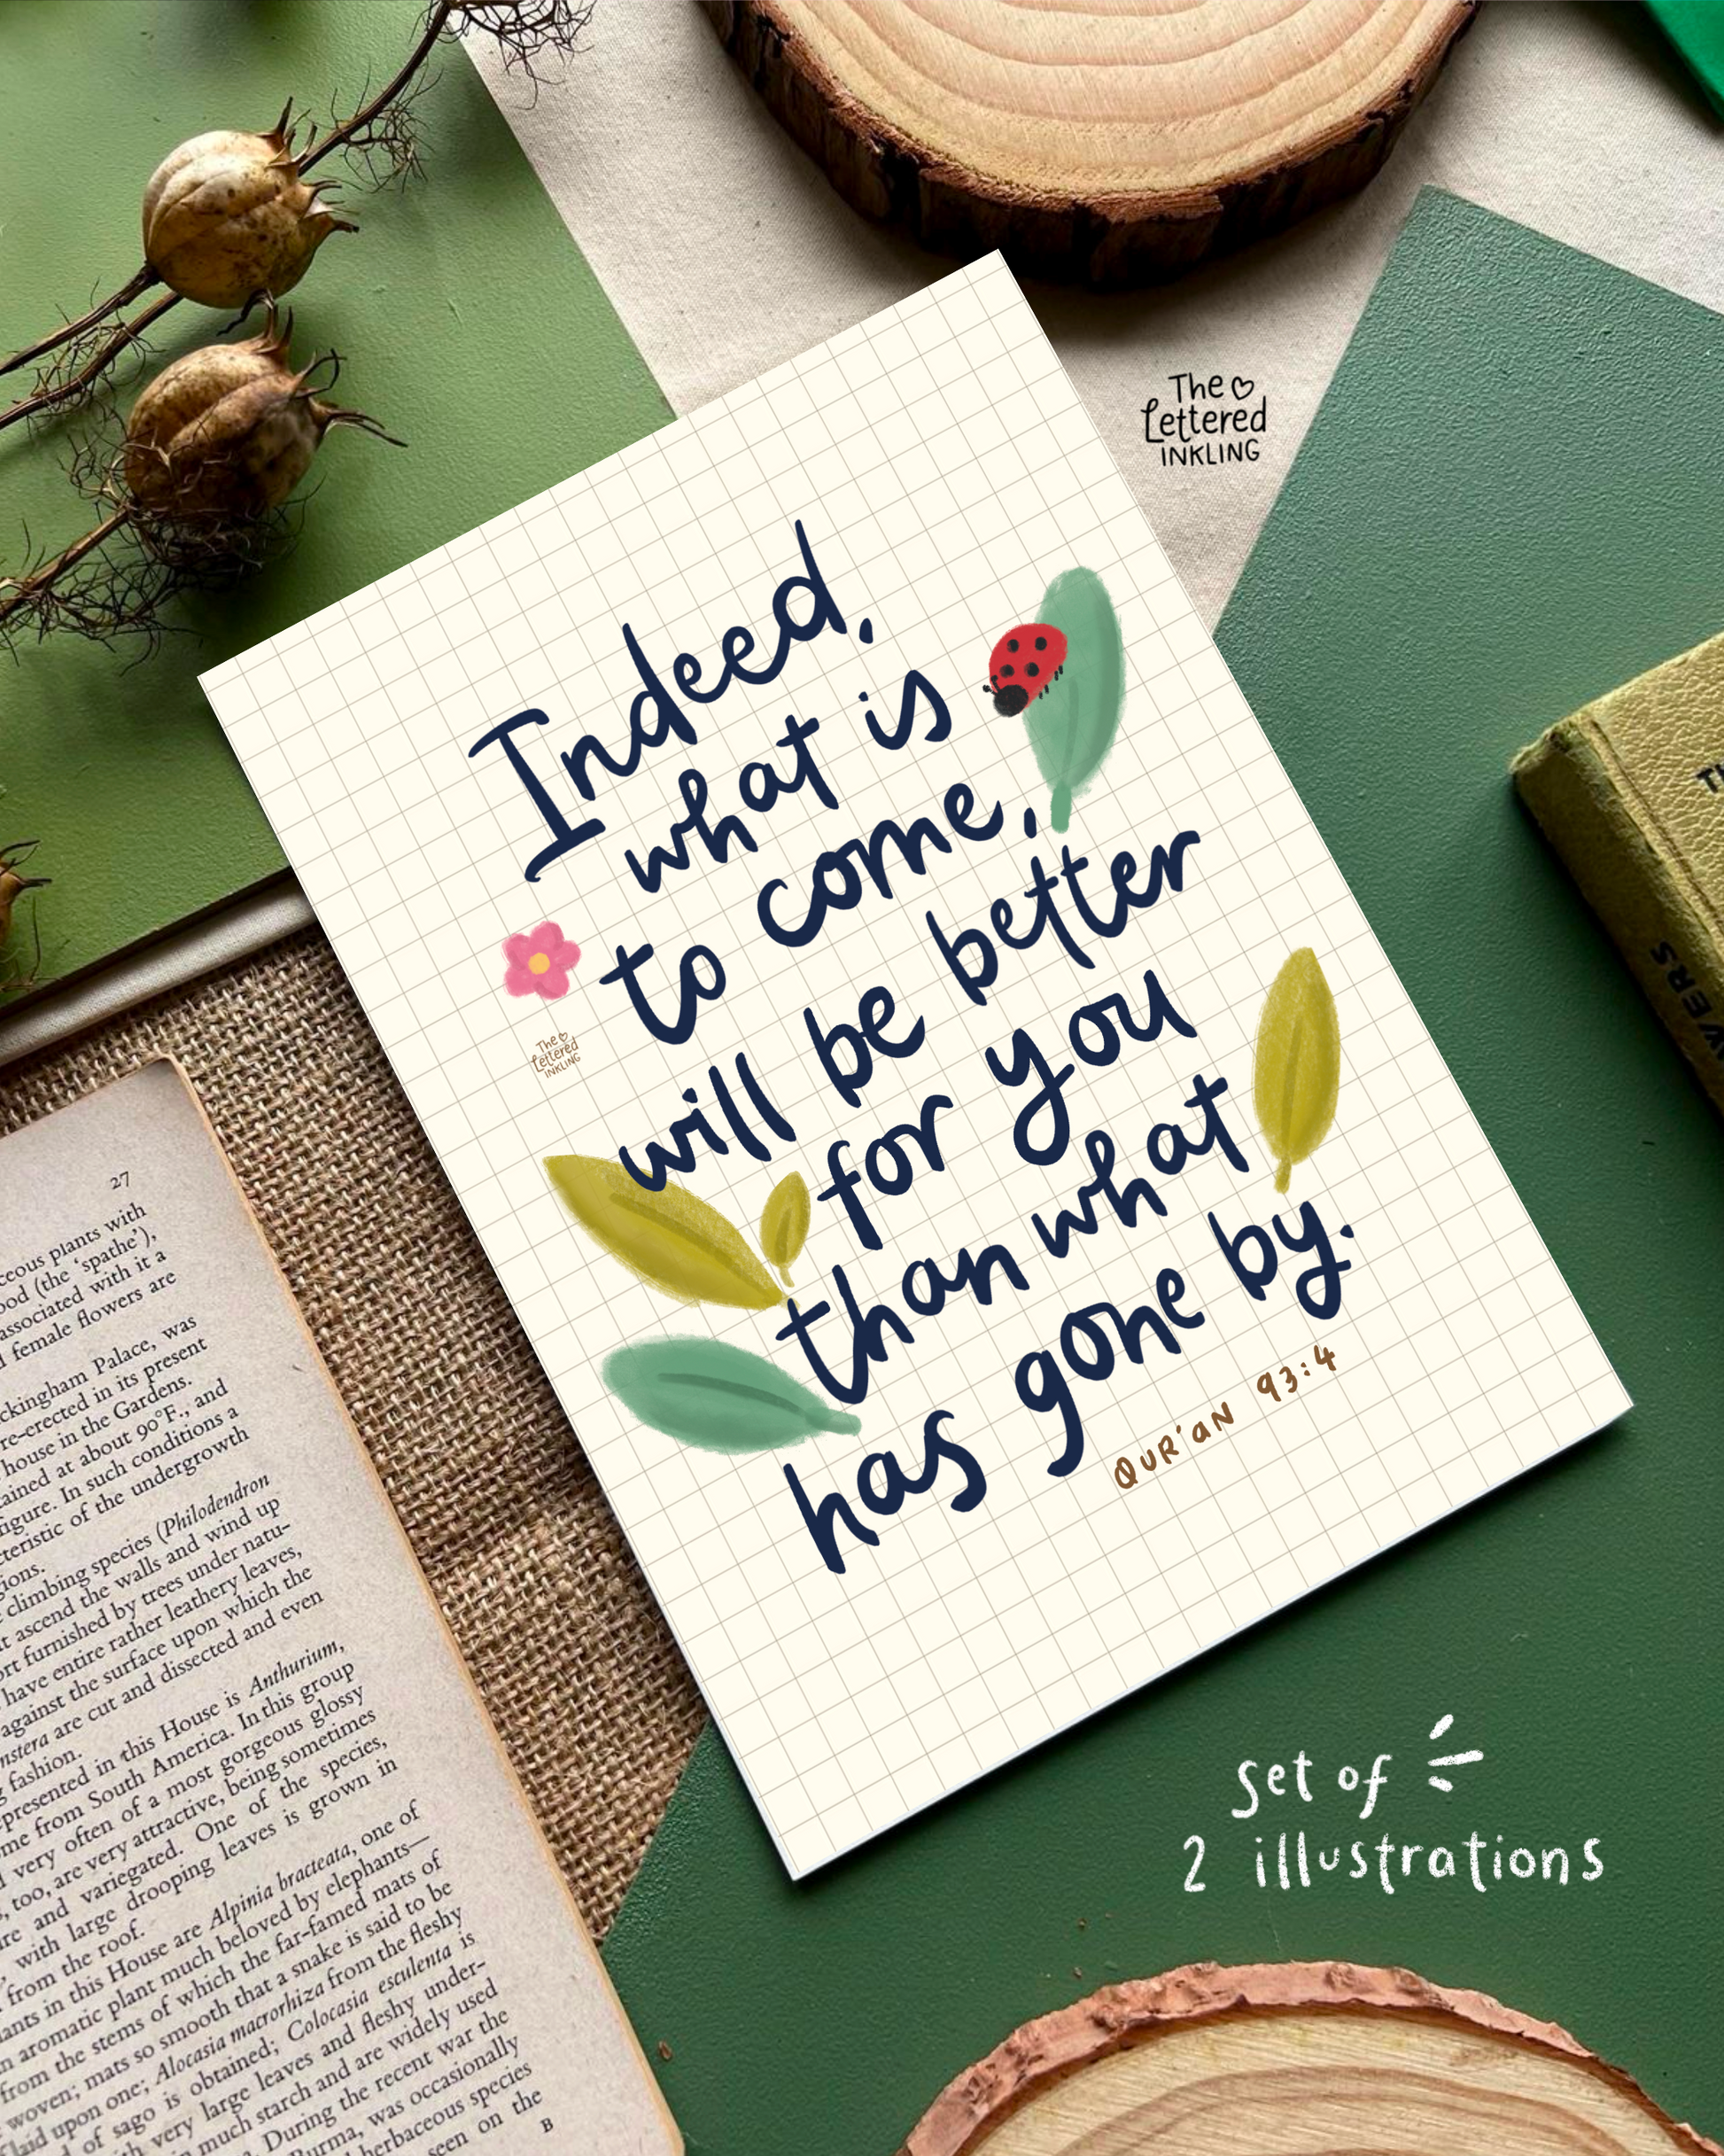 The
Lettered
INKLING
Indeed,
what is
to come,
will be better
for you
than what
has gone by.
QUR'AN 93:4
The
Lettered
INKLING
set of
2 illustrations
27
ceous plants with
ood (the ‘spathe’),
associated with it a
female flowers are
ckingham Palace, was
re-erected in its present
house in the Gardens.
tained at about 90°F., and
figure. In such conditions a
cteristic of the undergrowth
gions.
climbing species (Philodendron
t ascend the walls and wind up
ort furnished by trees under natu-
have entire rather leathery leaves,
against the surface upon which the
nstera are cut and dissected and even
g fashion.
presented in this House is Anthurium,
me from South America. In this group
very often of a most gorgeous glossy
, too, are very attractive, being sometimes
re and variegated. One of the species,
, with large drooping leaves is grown in
from the roof.
ants in this House are Alpinia bracteata, one of
n aromatic plant much beloved by elephants—
from the stems of which the far-famed mats of
woven; mats so smooth that a snake is said to be
laid upon one; Alocasia macrorhiza from the fleshy
of sago is obtained; Colocasia esculenta is
th very large leaves and fleshy under-
much starch and are widely used
. During the recent war the
Burma, was occasionally
herbaceous species
seen on the
B
TH
VERS